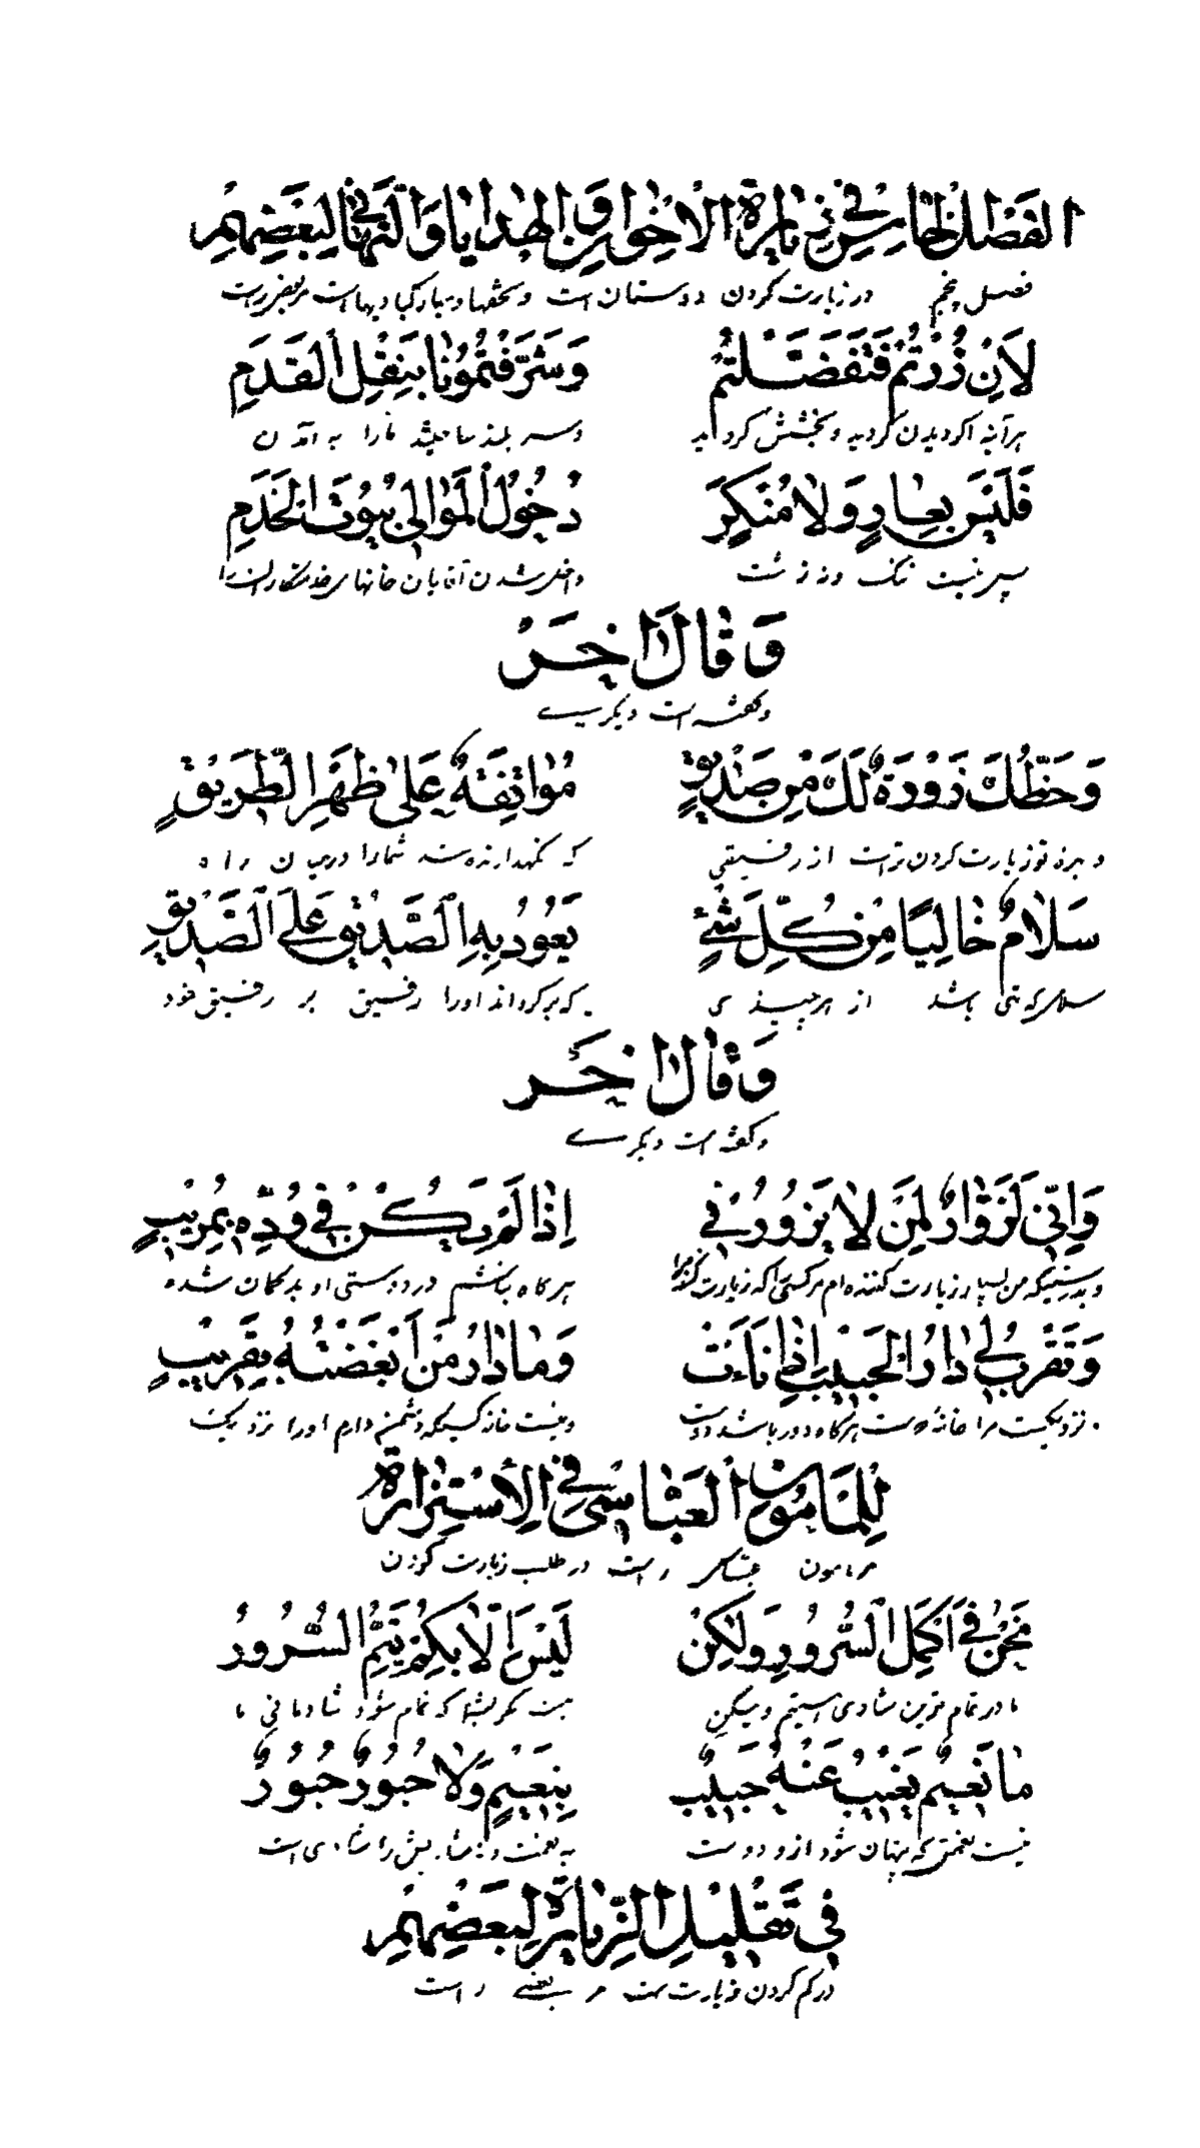 الفَصْلُ الخامِسُ في زِيارَةِ الْاِخْوانِ وَ الهَدايا وَالتَّهاني لِبَعْضِهِمْ
فصل پنجم در زيارت كردن دوستان است و تحفها و مباركباديها است مر بعضى راست
لَاِنْ زُرْتُمُ فَتَفَضَّلْتُمُ وَشَرَّفْتُمُونا بِنَقْلِ الْقَدَمِ
هر آينه اگر ديدن كرديد و بخشش كرديد و سر بلند ساختيد مارا به آمدن
فَلَيْسَ بِعارٍ وَلا مُنْكَرٍ دُخُولُ الْمَوالى بُيُوتَ الخَدَمِ
پس نيست ننگ و نه زشت داخل شدن آقايان خانهاى خدمتكاران را
وَقالَ اخَرْ
و گفته است ديگرى
وَحَظُّكَ زَوْرَةٌ لَكَ مِنْ صَديقٍ مُوافِقَةٌ عَلى ظَهْرِ الطَّريقِ
و بهرهٔ تو زيارت كردن تراست از رفيقى كه نگهدارنده شمارا در ميان راه
سَلامٌ خالِيًا مِنْ كُلِّ شَيْءٍ يَعُودُ بِهِ الصَّديقُ عَلَى الصَّديقِ
سلاميكه تهى باشد از هر چيزى كه برگرداند اورا رفيق بر رفيق خود
وَقالَ اخَر
و گفته است ديگرى
وَاِنّى لَزَوّارٌ لِمَنْ لا يَزُورُني اِذا لَمْ يَكُنْ في وُدِّهِ بِمُريبٍ
و بدرستيكه من بسيار زيارت كننده ام مر كسى را كه زيارت نكند مرا هر گاه نباشم در دوستى او بدگمان شده
وَتَقْرُبُ لي دارُ الحَبيبِ اِذا نَاَتْ وَما دارُ مَنْ اَبْغَضْتُهُ بِقَريبٍ
نزديكست مرا خانهٔ دوست هرگاه دور باشد و نيست خانه كسيكه دشمن دارم اورا نزديك
لِلْمَأمُونِ العَبّاسي فِي الْاِسْتِزارَة
مر مامون عباسى راست در طلب زيارت كردن
نَحْنُ في اَكْمَلِ السُّرُورِ وَلكِنْ لَيْسَ اِلّا بِكُمْ يَتِمُّ السُّرُورُ
ما در تمام ترين شادى هستيم و ليكن نيست مگر بشما كه تمام شود شادمانى ما
ما نَعيمٌ يَغيبُ عَنْهُ حَبيبٌ بِنَعيمٍ وَلا حُبُورٌ حُبُورٌ
نيست نعمتى كه پنهان شود ازو دوست به نعمت و نه شادى را شادى است
في تَقْليلِ الزِّيارَةِ لِبَعْضِهِمْ
در كم كردن زيارت است مر بعضى راست